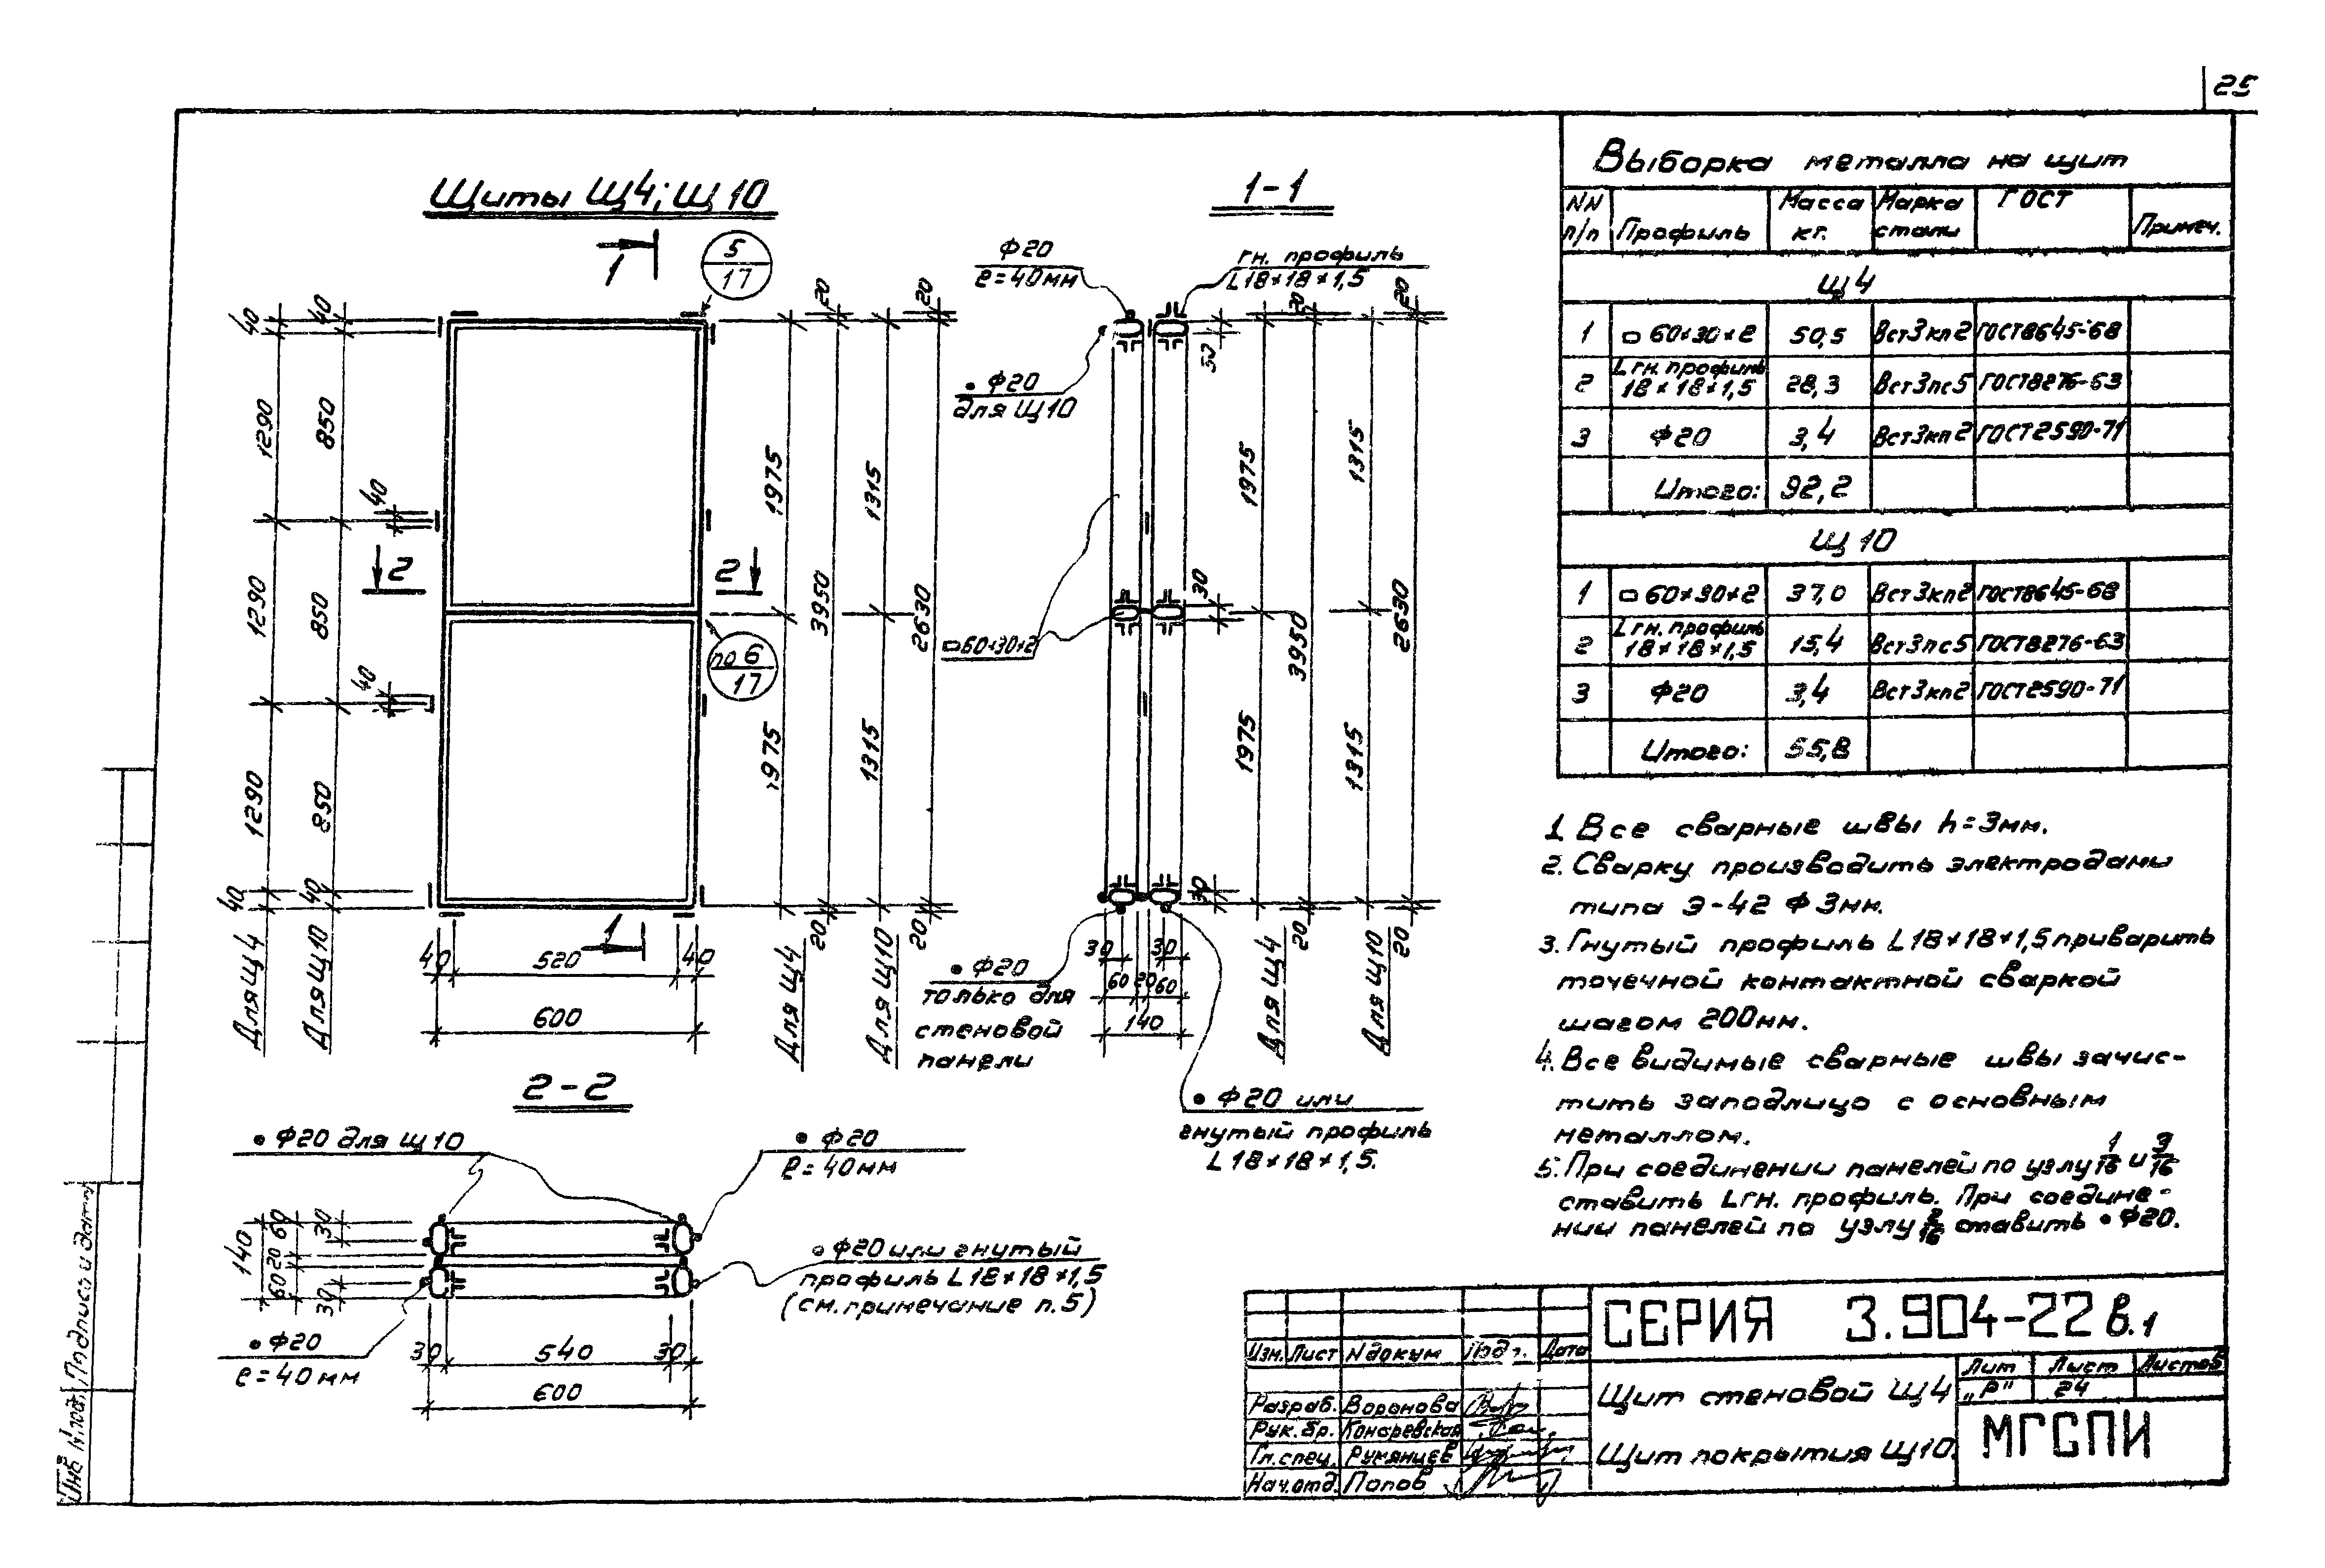 25
Щиты Щ4; Щ10
1
5
17
40
1290
1290
1290
40
Для Щ4
40
850
850
850
40
Для Щ10
40
40
2
2
по 6
17
1975
1975
20
3950
20
Для Щ4
1315
1315
20
2630
20
Для Щ10
1
40
520
40
600
1-1
Ф20
ℓ=40мм
гн. профиль
L18×18×1,5
• Ф20
для Щ10
▭60×30×2
30
30
30
1975
1975
20
3950
20
Для Щ4
1315
1315
20
2630
20
Для Щ10
• Ф20
только для
стеновой
панели
30
30
60
20
60
140
• Ф20 или
гнутый профиль
L18×18×1,5.
2-2
• Ф20 для Щ10
• Ф20
ℓ=40мм
140
60
20
60
30
30
• Ф20 или гнутый
профиль L18×18×1,5
(см. примечание п.5)
• Ф20
ℓ=40мм
30
540
30
600
Выборка металла на щит
NN п/п Профиль Масса кг. Марка стали ГОСТ Примеч.
Щ4
1 ▭ 60×30×2 50,5 Вст3кп2 ГОСТ8645-68
2 L гн. профиль 18×18×1,5 28,3 Вст3пс5 ГОСТ8276-63
3 Ф20 3,4 Вст3кп2 ГОСТ2590-71
Итого: 92,2
Щ10
1 ▭ 60×30×2 37,0 Вст3кп2 ГОСТ8645-68
2 L гн. профиль 18×18×1,5 15,4 Вст3пс5 ГОСТ8276-63
3 Ф20 3,4 Вст3кп2 ГОСТ2590-71
Итого: 55,8
1. Все сварные швы h=3мм.
2. Сварку производить электродами
типа Э-42 Ф3мм.
3. Гнутый профиль L18×18×1,5 приварить
точечной контактной сваркой
шагом 200мм.
4. Все видимые сварные швы зачис-
тить заподлицо с основным
металлом.
5. При соединении панелей по узлу 1/16 и 3/16
ставить L гн. профиль. При соедине-
нии панелей по узлу 2/16 ставить • Ф20.
Изм. Лист N докум Подп. Дата
Разраб. Воронова
Рук. бр. Конаревская
Гл. спец. Румянцев
Нач. отд. Попов
СЕРИЯ 3.904-22 в.1
Щит стеновой Щ4
Щит покрытия Щ10.
Лит Лист Листов
„Р" 24
МГСПИ
Инв N подл. Подпись и дата